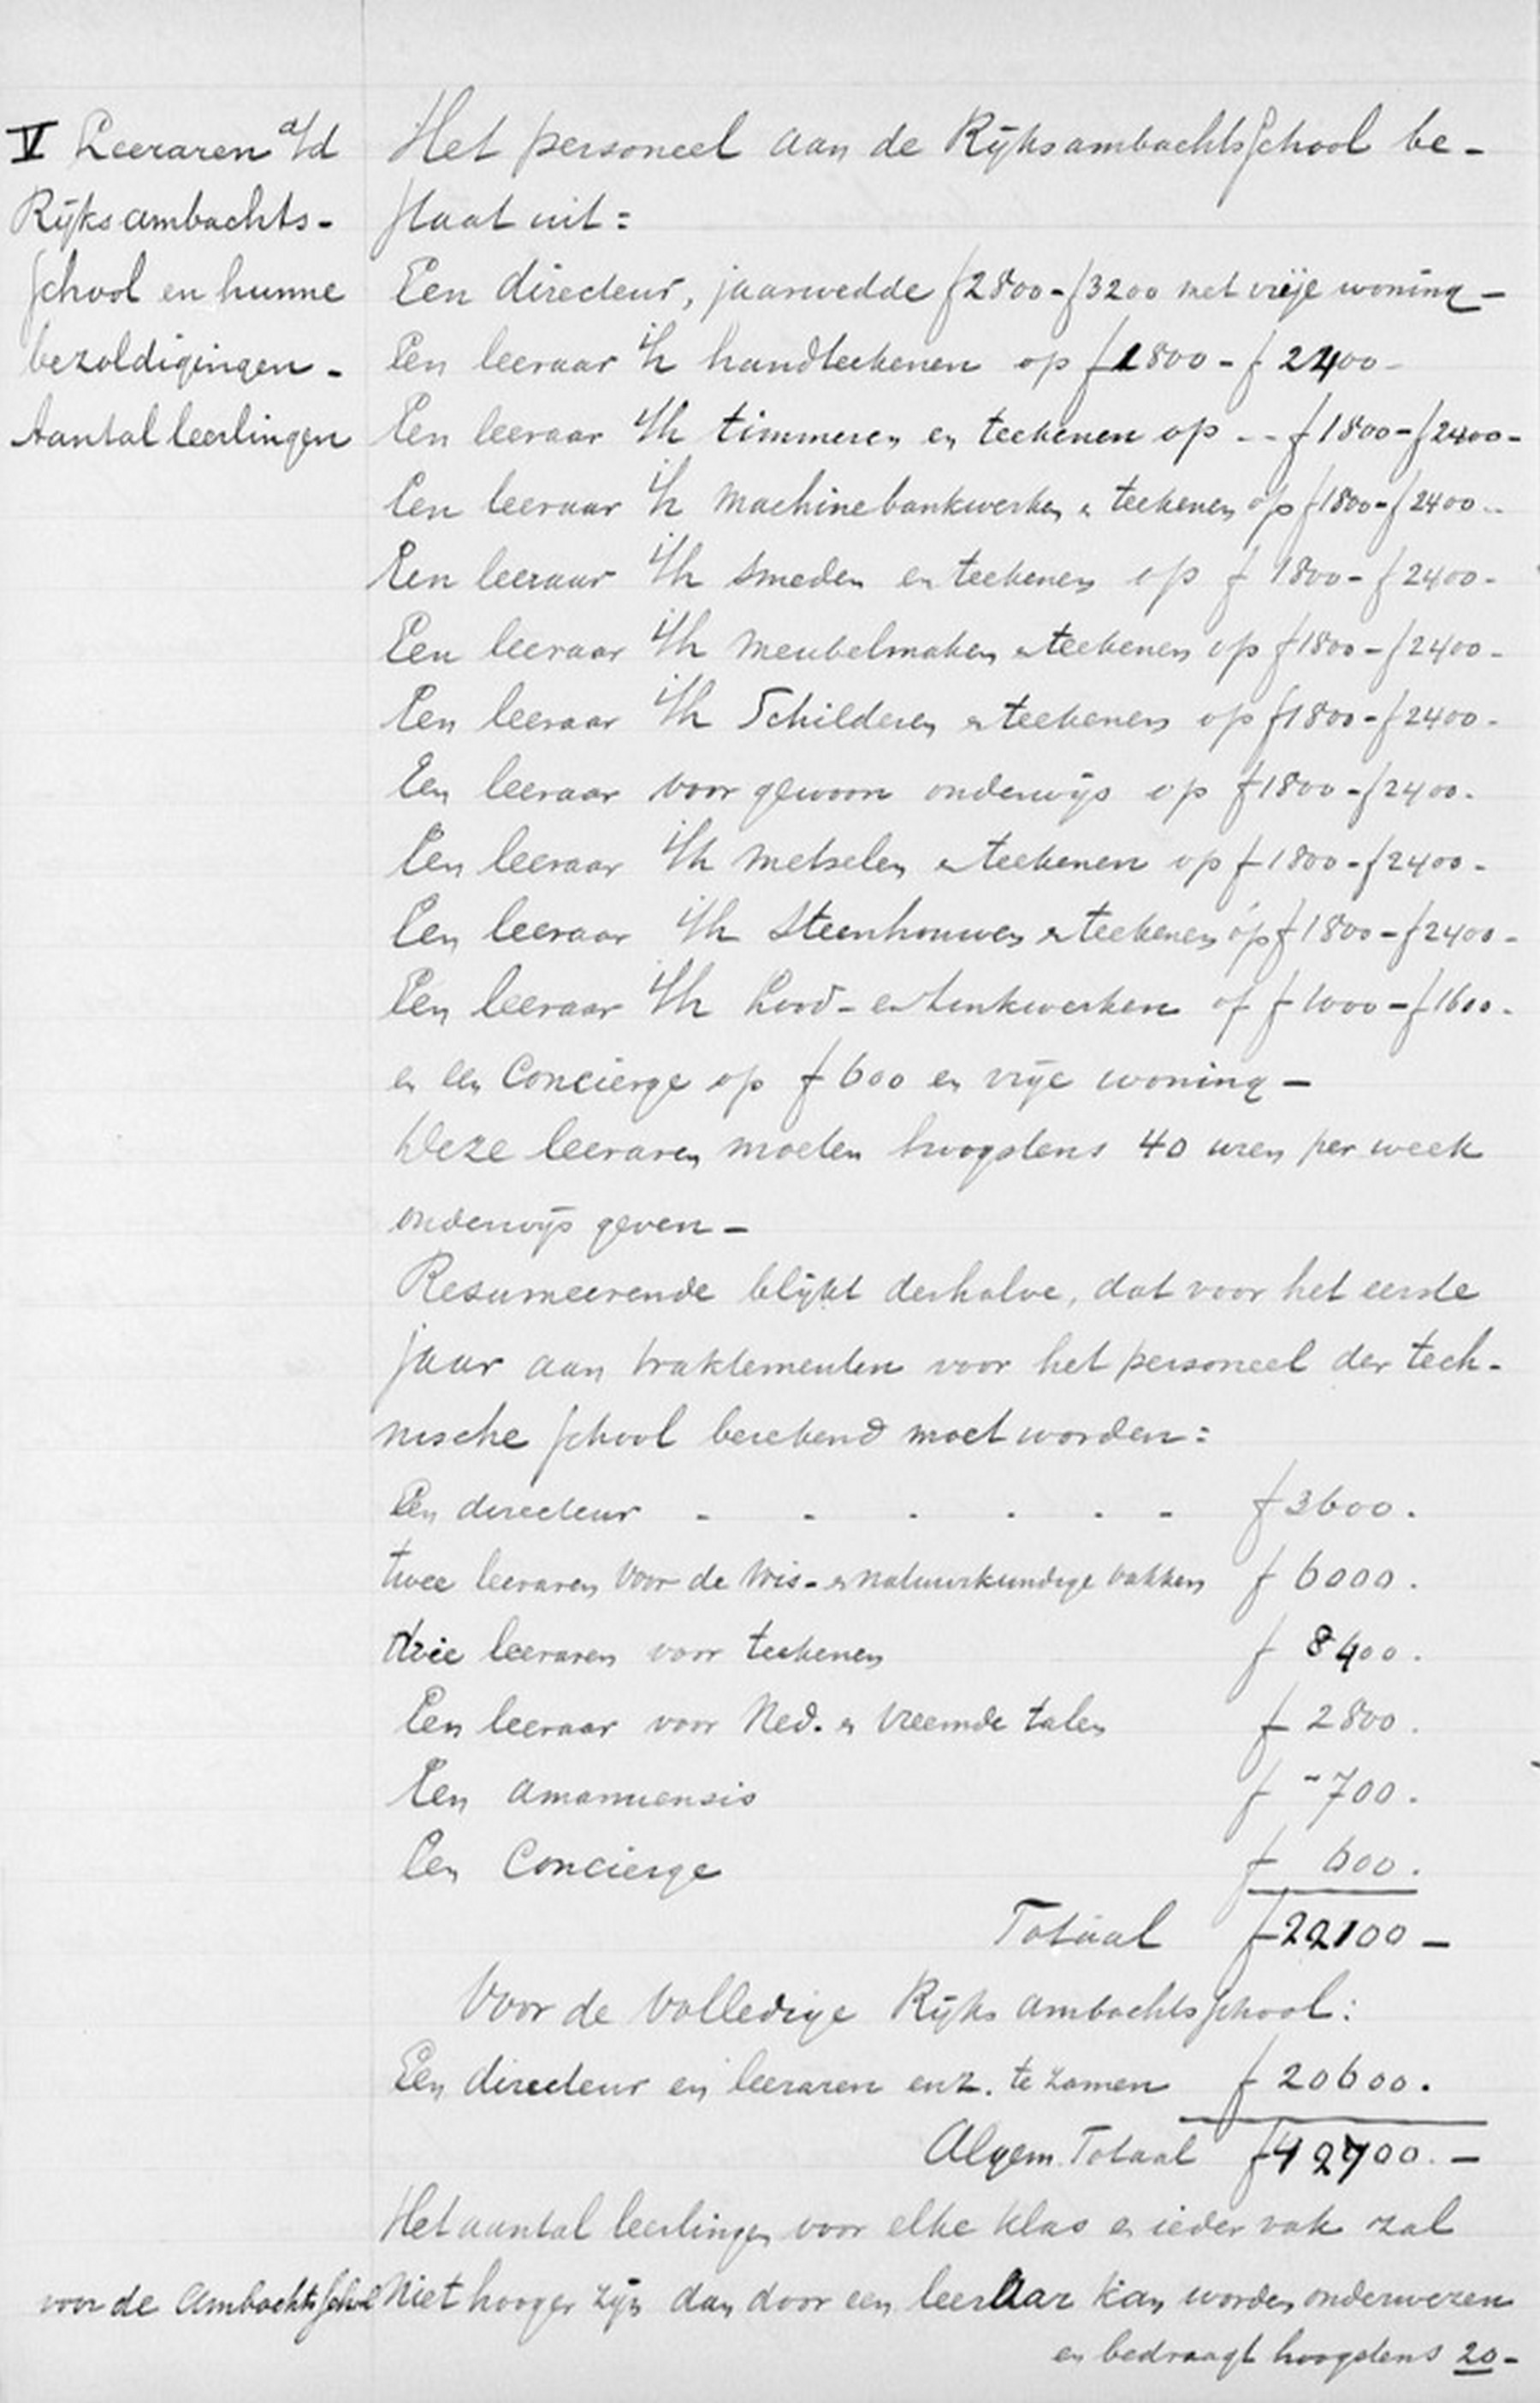 V Leeraren a/d
Rijksambachts-
school en hunne
bezoldigingen -
Aantal leerlingen
Het personeel aan de Rijksambachtsschool be-
staat uit:
Een directeur, jaarwedde f 2800 - f 3200 met vrije woning -
Een leeraar i/h handteekenen op f 1800 - f 2400 -
Een leeraar i/h timmeren en teekenen op - - f 1800 - f 2400 -
Een leeraar i/h machinebankwerken en teekenen op f 1800 - f 2400 -
Een leeraar i/h smeden en teekenen op f 1800 - f 2400 -
Een leeraar i/h meubelmaken en teekenen op f 1800 - f 2400 -
Een leeraar i/h Schilderen en teekenen op f 1800 - f 2400 -
Een leeraar voor gewoon onderwijs op f 1800 - f 2400 -
Een leeraar i/h metselen en teekenen op f 1800 - f 2400 -
Een leeraar i/h Steenhouwen en teekenen op f 1800 - f 2400 -
Een leeraar i/h Lood- en zinkwerken of f 1000 - f 1600 -
en een Concierge op f 600 en vrije woning -
Deze leeraren moeten hoogstens 40 uren per week
onderwijs geven -
Resumeerende blijkt derhalve, dat voor het eerste
jaar aan traktementen voor het personeel der tech-
nische school berekend moet worden:
Een directeur - - - - - - f 3600.
twee leeraren voor de wis- en natuurkundige vakken f 6000.
drie leeraren voor teekenen f 8400.
Een leeraar voor Ned. en vreemde talen f 2800.
Een amanuensis f - 700.
Een Concierge f 600.
Totaal f 22100 -
Voor de volledige Rijksambachtsschool:
Een directeur en leeraren enz. te zamen f 20600.
Algem. Totaal f 42700. -
Het aantal leerlingen voor elke klas en ieder vak zal
voor de Ambachtsschool niet hooger zijn dan door een leeraar kan worden onderwezen
en bedraagt hoogstens 20 -